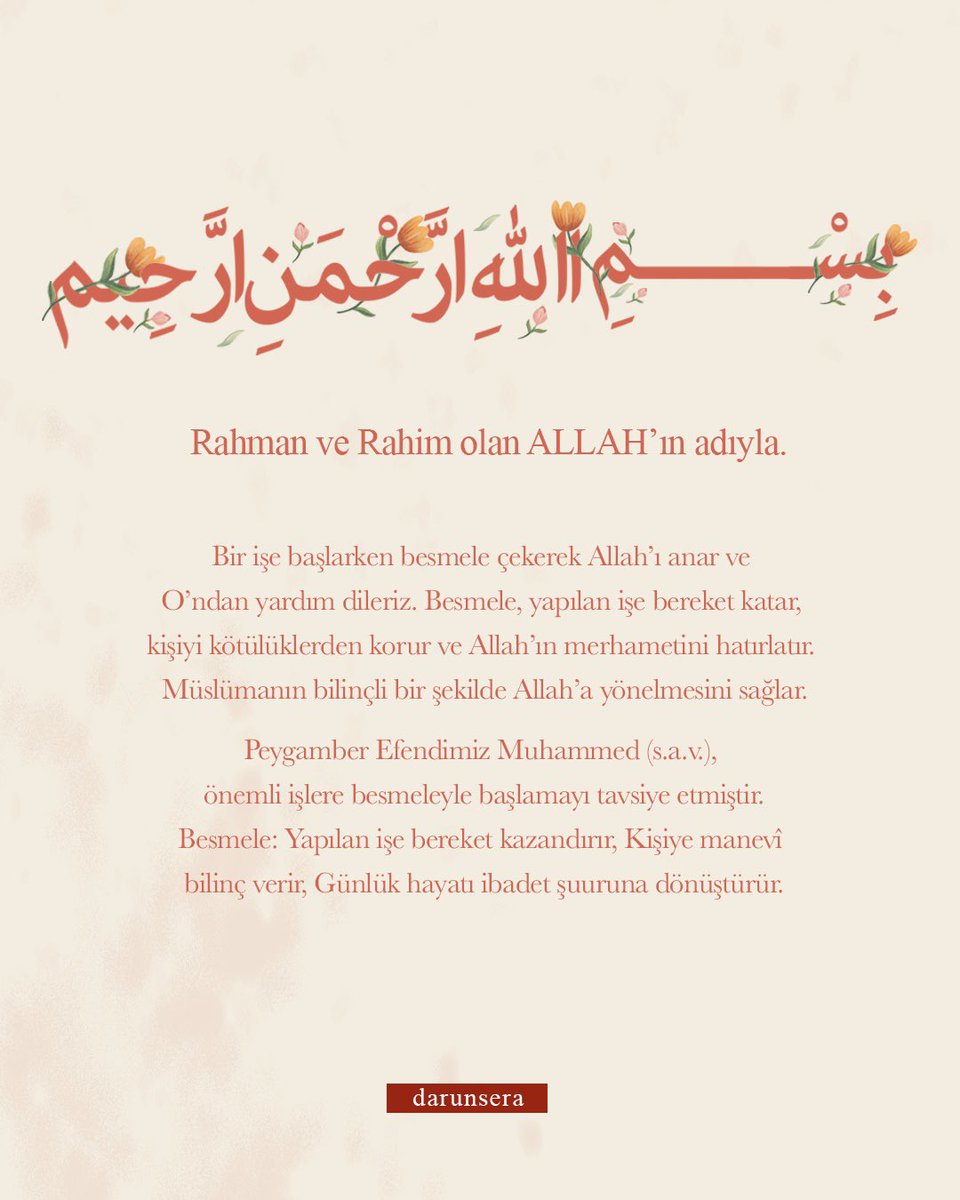 بِسْـــــمِ االلّٰهِ ارَّحْمَنِ ارَّحِيم
Rahman ve Rahim olan ALLAH’ın adıyla.
Bir işe başlarken besmele çekerek Allah’ı anar ve
O’ndan yardım dileriz. Besmele, yapılan işe bereket katar,
kişiyi kötülüklerden korur ve Allah’ın merhametini hatırlatır.
Müslümanın bilinçli bir şekilde Allah’a yönelmesini sağlar.
Peygamber Efendimiz Muhammed (s.a.v.),
önemli işlere besmeleyle başlamayı tavsiye etmiştir.
Besmele: Yapılan işe bereket kazandırır, Kişiye manevî
bilinç verir, Günlük hayatı ibadet şuuruna dönüştürür.
darunsera